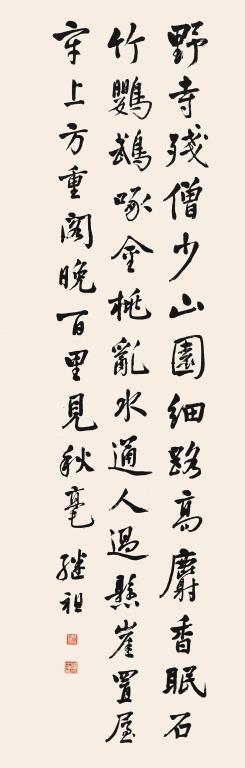 野寺殘僧少山園細路高麝香眠石
竹鸚鵡啄金桃亂水通人過懸崖置屋
牢上方重閣晚百里見秋毫 繼祖